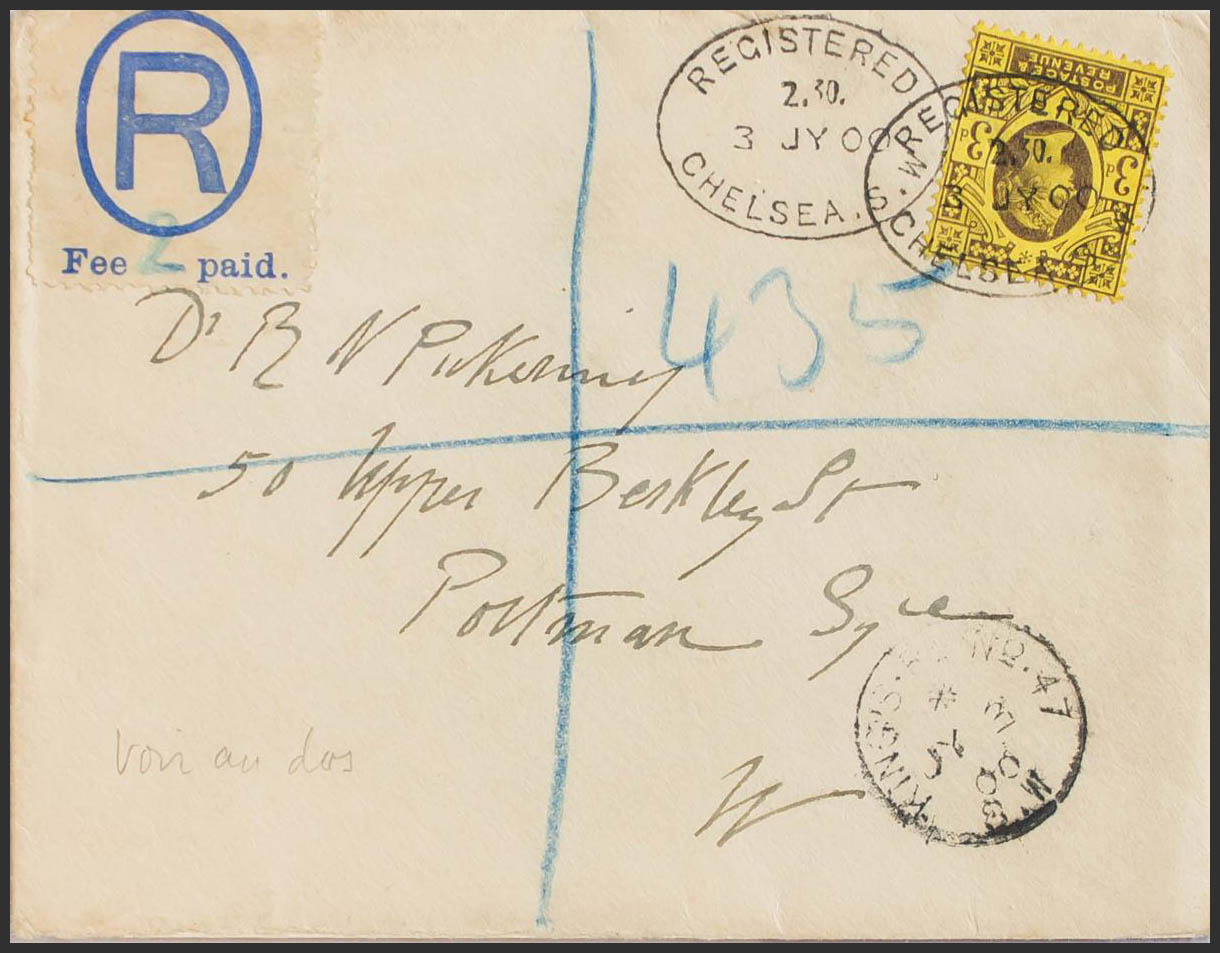 R
Fee 2 paid.
REGISTERED
2.30.
3 JY 00
CHELSEA.S.W
POSTAGE &
REVENUE
3D
3D
REGISTERED
2.30.
3 JY 00
CHELSEA.
435
Dr R N Pickerniey
50 Upper Berkley St
Portman Sqre
W
KING'S. NO. 47
3 JY 00
voir au dos